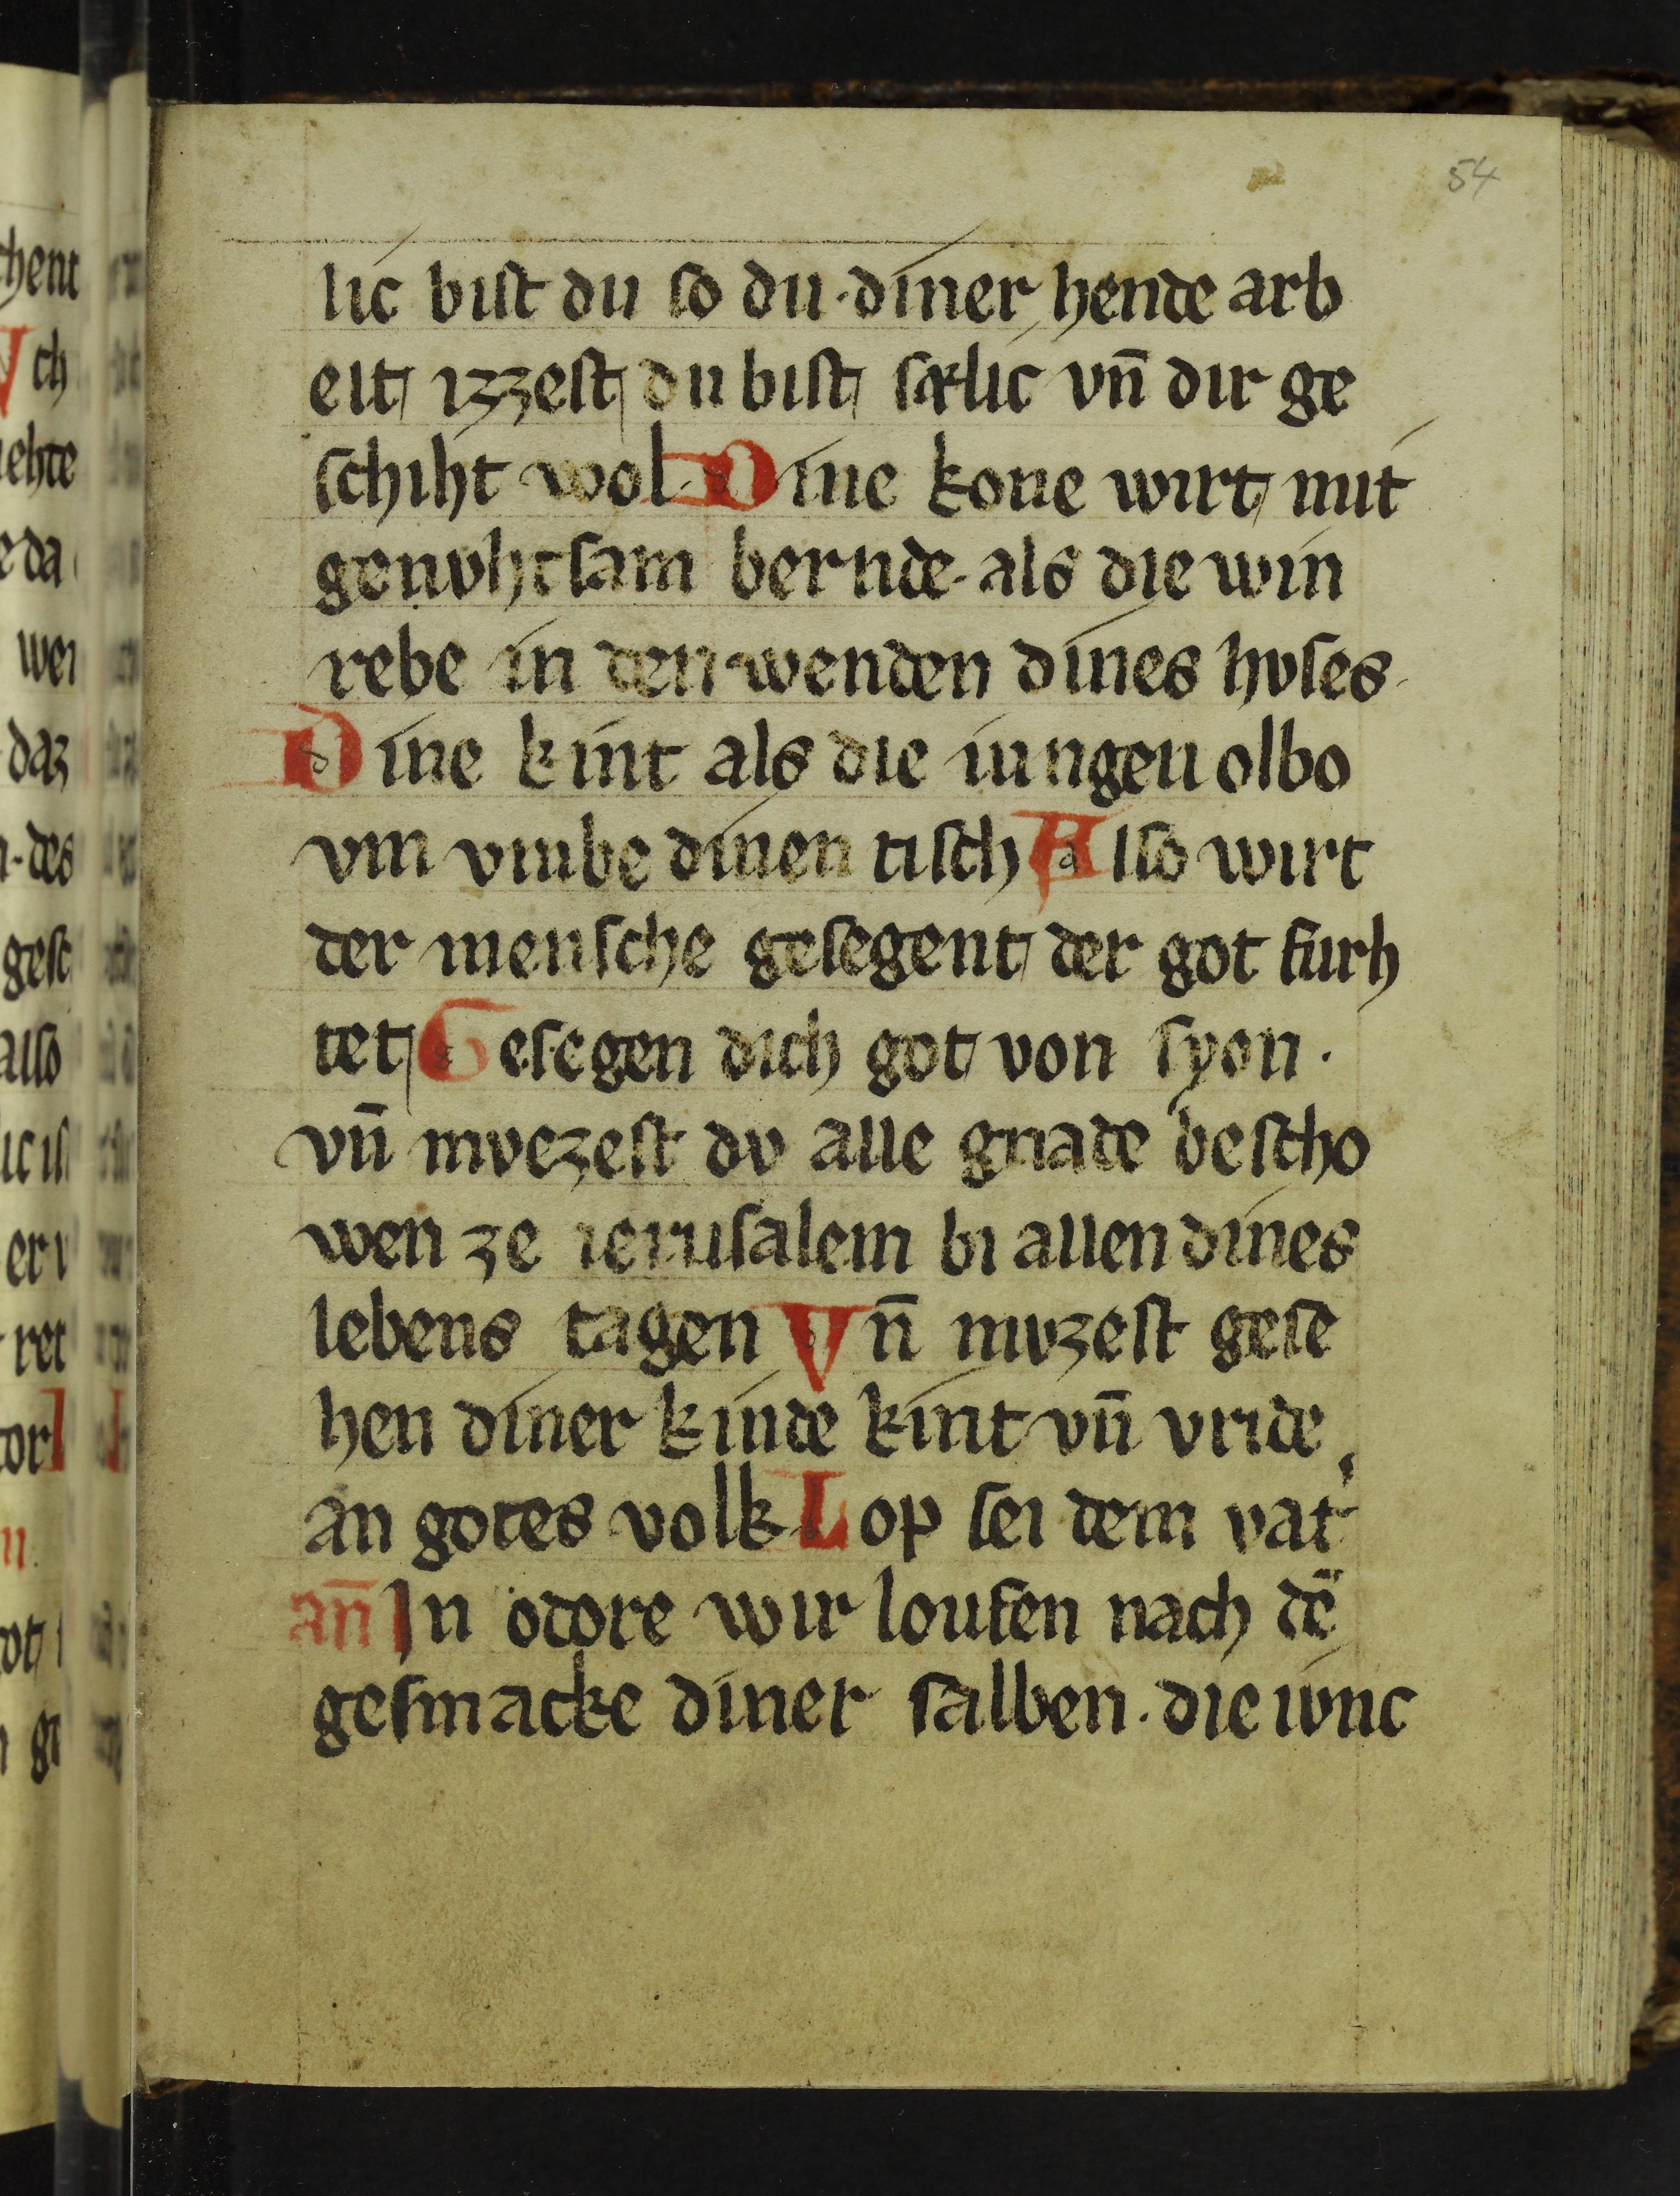 54
lic bist du so du·diner hende arb
eit izzest du bist sælic vn̄ dir ge
schiht wol· Dine kone wirt mit
genvhtsam bernde· als die win
rebe in den wenden dines hvses·
Dine kint als die iungen olbo
vm vmbe dinen tisch Also wirt
der mensche gesegent der got furh
tet Gesegen dich got von syon·
vn̄ mvezest dv alle gnade bescho
wen ze ierusalem bi allen dines
lebens tagen Vn̄ mvzest gese
hen diner kinde kint vn̄ vride
an gotes volk Lop sei dem vat͛
an̄ In odore wir loufen nach dē
gesmacke diner salben· die ivnc